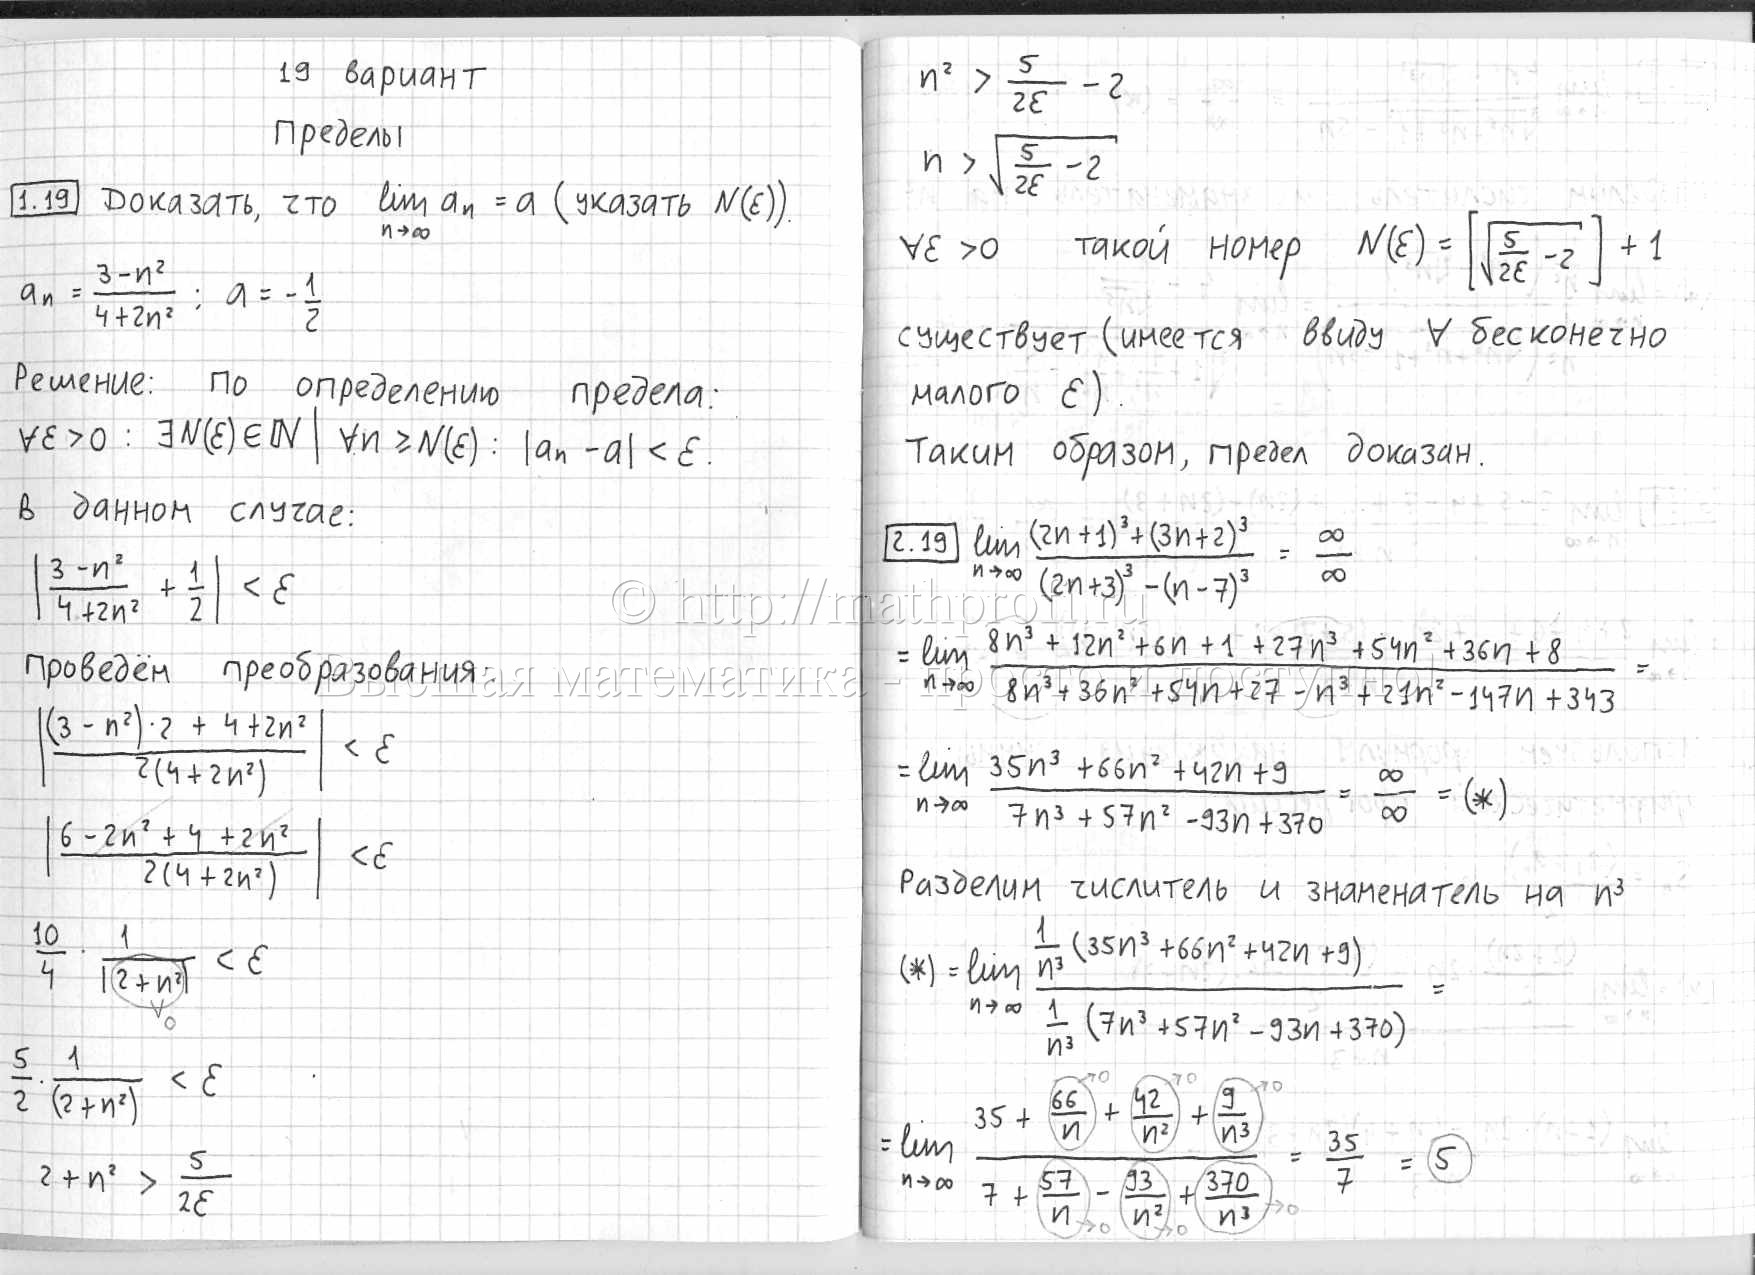 19 вариант
Пределы
1.19 Доказать, что lim aₙ = a (указать N(ε)).
n→∞
aₙ = (3-n²)/(4+2n²) ; a = -1/2
Решение: по определению предела:
∀ε>0 : ∃N(ε)∈ℕ | ∀n ≥ N(ε) : |aₙ - a| < ε.
В данном случае:
|(3-n²)/(4+2n²) + 1/2| < ε
Проведём преобразования
|((3-n²)·2 + 4+2n²)/(2(4+2n²))| < ε
|(6-2n²+4+2n²)/(2(4+2n²))| < ε
10/4 · 1/|2+n²| < ε
∨0
5/2 · 1/(2+n²) < ε
2+n² > 5/(2ε)
n² > 5/(2ε) - 2
n > √(5/(2ε) - 2)
∀ε>0 такой номер N(ε) = [√(5/(2ε) - 2)] + 1
существует (имеется ввиду ∀ бесконечно
малого ε).
Таким образом, предел доказан.
2.19 lim n→∞ ((2n+1)³+(3n+2)³)/((2n+3)³-(n-7)³) = ∞/∞
= lim n→∞ (8n³+12n²+6n+1+27n³+54n²+36n+8)/(8n³+36n²+54n+27-n³+21n²-147n+343) =
= lim n→∞ (35n³+66n²+42n+9)/(7n³+57n²-93n+370) = ∞/∞ = (*)
Разделим числитель и знаменатель на n³
(*) = lim n→∞ (1/n³ (35n³+66n²+42n+9))/(1/n³ (7n³+57n²-93n+370)) =
= lim n→∞ (35 + 66/n→0 + 42/n²→0 + 9/n³→0)/(7 + 57/n→0 - 93/n²→0 + 370/n³→0) = 35/7 = 5
© http://mathprofi.ru
Высшая математика - просто и доступно